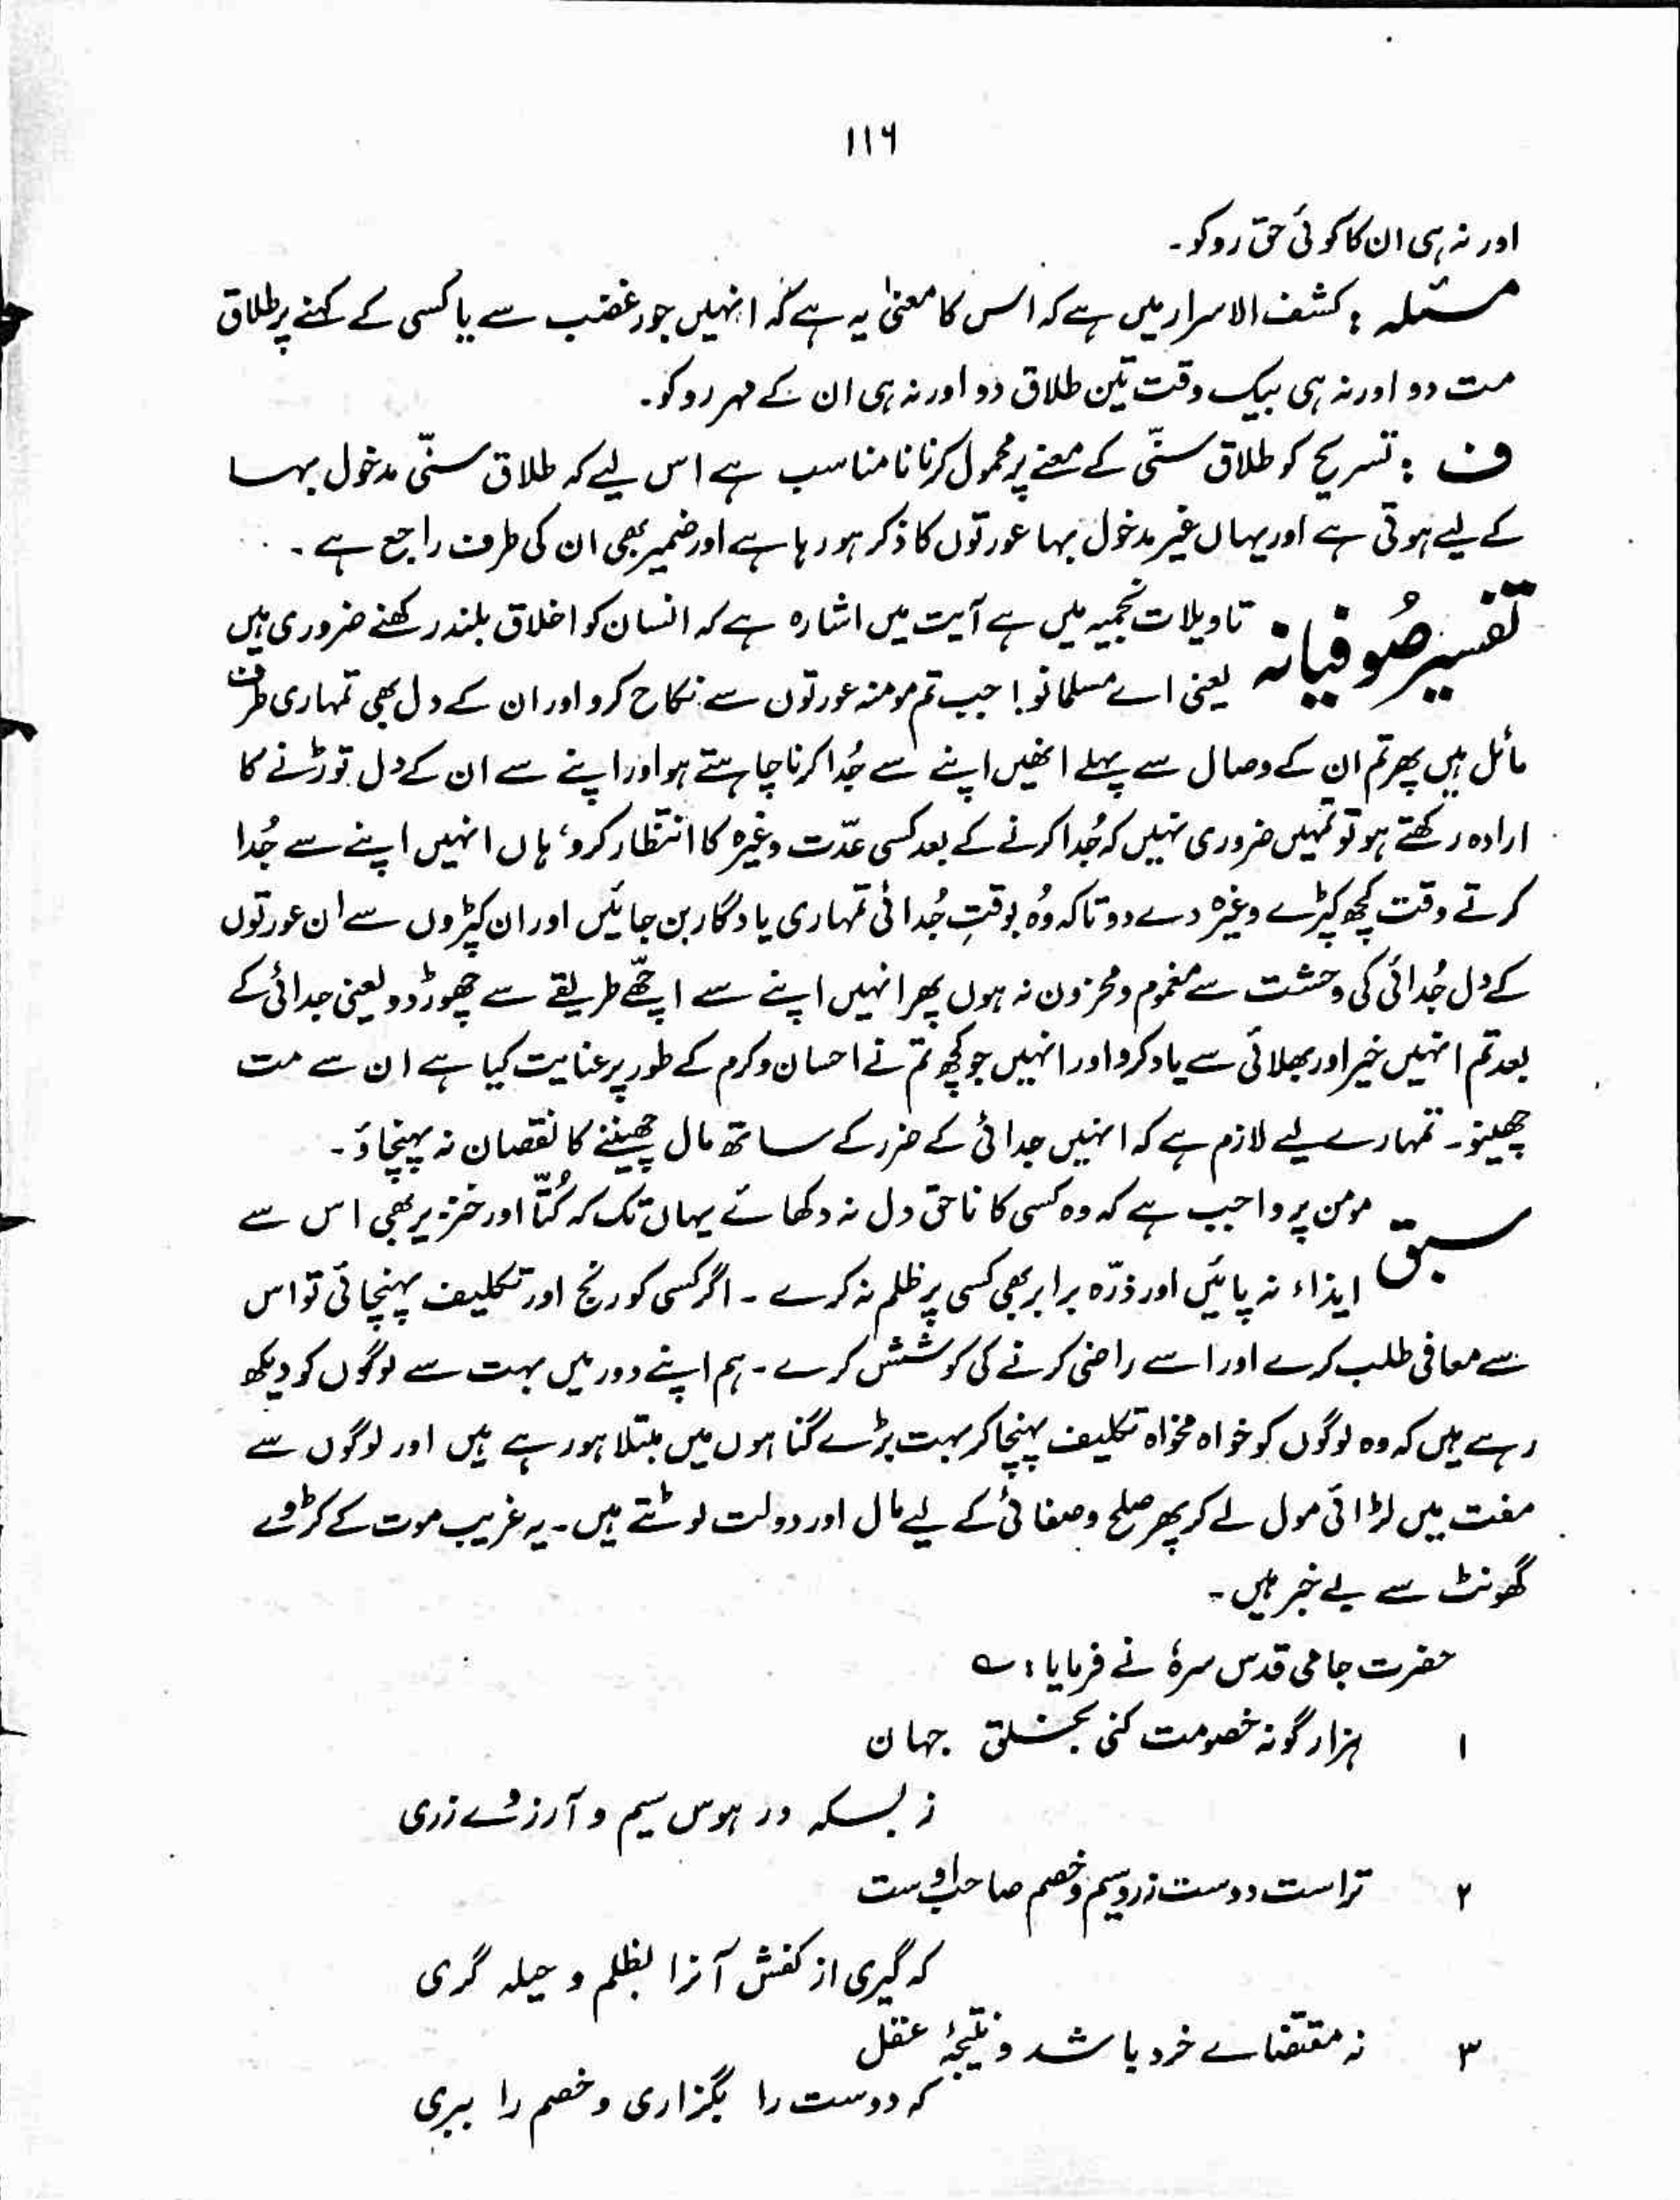 ۱۱۶
اور نہ ہی ان کا کوئی حق روکو۔
مسئلہ : کشف الاسرار میں ہے کہ اس کا معنیٰ یہ ہے کہ انہیں جور غضب سے یا کسی کے کہنے پر طلاق
مت دو اور نہ ہی بیک وقت تین طلاق دو اور نہ ہی ان کے مہر روکو۔
ف : تسریح کو طلاق سنّی کے معنے پر محمول کرنا نامناسب ہے اس لیے کہ طلاق سنّی مدخول بہا
کے لیے ہوتی ہے اور یہاں غیر مدخول بہا عورتوں کا ذکر ہو رہا ہے اور ضمیر بھی ان کی طرف راجع ہے ۔
تفسیر صُوفیانہ تاویلات نجمیہ میں ہے آیت میں اشارہ ہے کہ انسان کو اخلاق بلند رکھنے ضروری ہیں
یعنی اے مسلمانو! جب تم مومنہ عورتوں سے نکاح کرو اور ان کے دل بھی تمہاری طرف
مائل ہیں پھر تم ان کے وصال سے پہلے انھیں اپنے سے جُدا کرنا چاہتے ہو اور اپنے سے ان کے دل توڑنے کا
ارادہ رکھتے ہو تو تمہیں ضروری نہیں کہ جُدا کرنے کے بعد کسی عدّت وغیرہ کا انتظار کرو، ہاں انہیں اپنے سے جُدا
کرتے وقت کچھ کپڑے وغیرہ دے دو تاکہ وُہ بوقتِ جُدائی تمہاری یادگار بن جائیں اور ان کپڑوں سے ان عورتوں
کے دل جُدائی کی وحشت سے مغموم و محزون نہ ہوں پھر انہیں اپنے سے اچھّے طریقے سے چھوڑ دو یعنی جدائی کے
بعد تم انہیں خیر اور بھلائی سے یاد کرو اور انہیں جو کچھ تم نے احسان و کرم کے طور پر عنایت کیا ہے ان سے مت
چھینو۔ تمہارے لیے لازم ہے کہ انہیں جدائی کے ضرر کے ساتھ مال چھیننے کا نقصان نہ پہنچاؤ۔
سبق مومن پر واجب ہے کہ وہ کسی کا ناحق دل نہ دکھائے یہاں تک کہ کُتّا اور خنزیر بھی اس سے
ایذاء نہ پائیں اور ذرّہ برابر بھی کسی پر ظلم نہ کرے ۔ اگر کسی کو رنج اور تکلیف پہنچائی تو اس
سے معافی طلب کرے اور اسے راضی کرنے کی کوشش کرے ۔ ہم اپنے دور میں بہت سے لوگوں کو دیکھ
رہے ہیں کہ وہ لوگوں کو خواہ مخواہ تکلیف پہنچا کر بہت بڑے گناہوں میں مبتلا ہو رہے ہیں اور لوگوں سے
مفت میں لڑائی مول لے کر پھر صلح و صفائی کے لیے مال اور دولت لوٹتے ہیں ۔ یہ غریب موت کے کڑوے
گھونٹ سے بے خبر ہیں ۔
حضرت جامی قدس سرہٗ نے فرمایا : ؎
۱ ہزار گونہ خصومت کنی بخلق جہان
ز بسکہ در ہوس سیم و آرزوے زری
۲ تراست دوست زر و سیم و خصم صاحب اوست
کہ گیری از کفش آنرا بظلم و حیلہ گری
۳ نہ مقتضاے خرد باشد و نتیجۂ عقل
کہ دوست را بگزاری و خصم را ببری